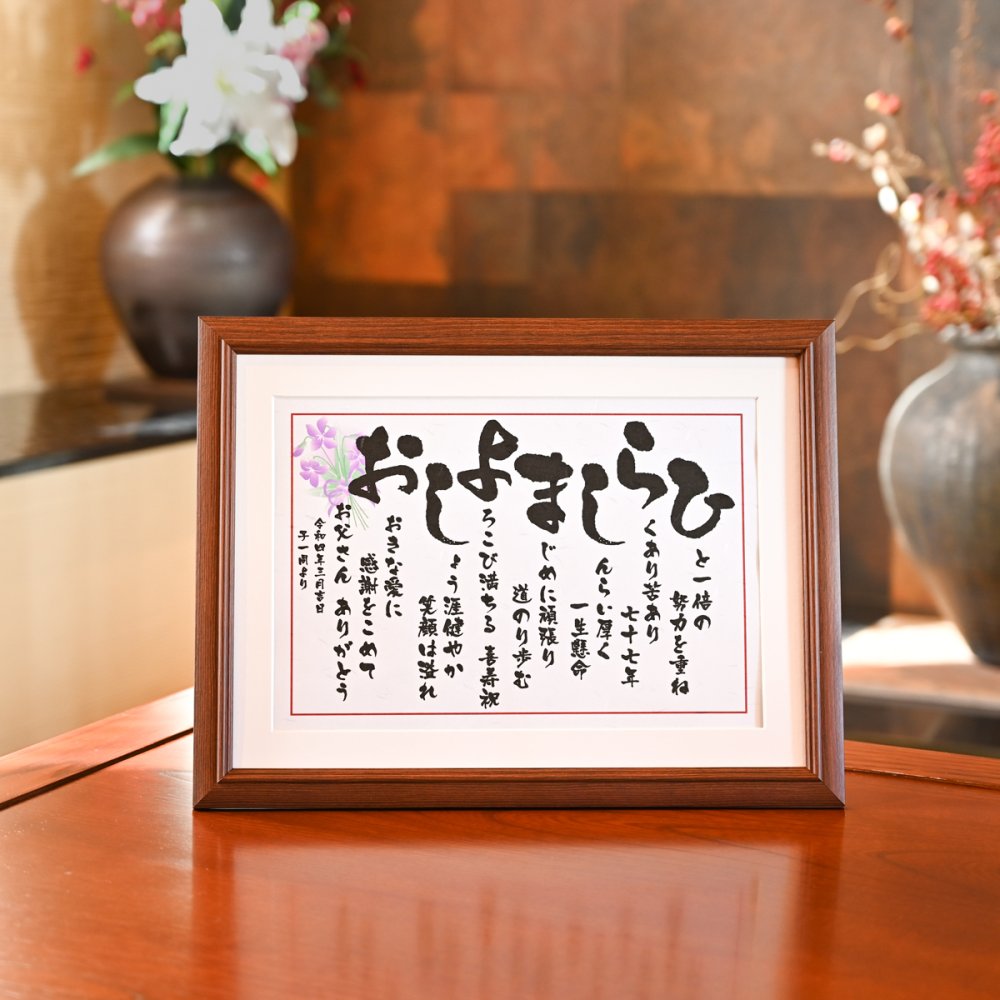 ひと一倍の
努力を重ね
らくあり苦あり
七十七年
しんらい厚く
一生懸命
まじめに頑張り
道のり歩む
よろこび満ちる 喜寿祝
しょう涯健やか
笑顔は溢れ
おおきな愛に
感謝をこめて
お父さん ありがとう
令和四年三月吉日
子一同より